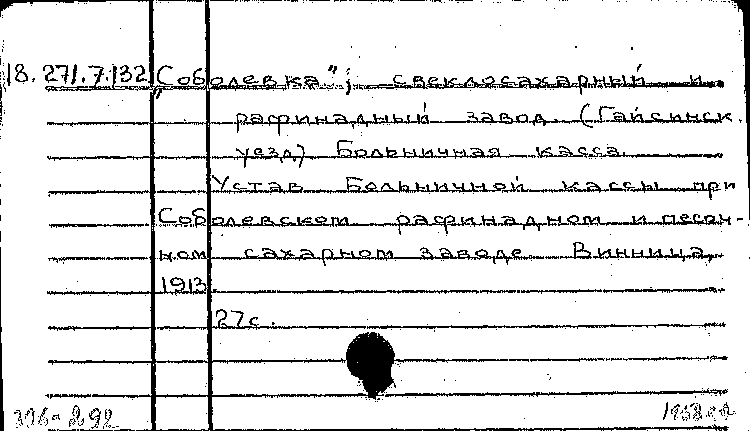 18.271.7.132 „Соболевка", свеклосахарный и
рафинадный завод. (Гайсинск.
уезд). Больничная касса.
Устав Больничной кассы при
Соболевском рафинадном и песоч-
ном сахарном заводе. Винница,
1913.
27с.